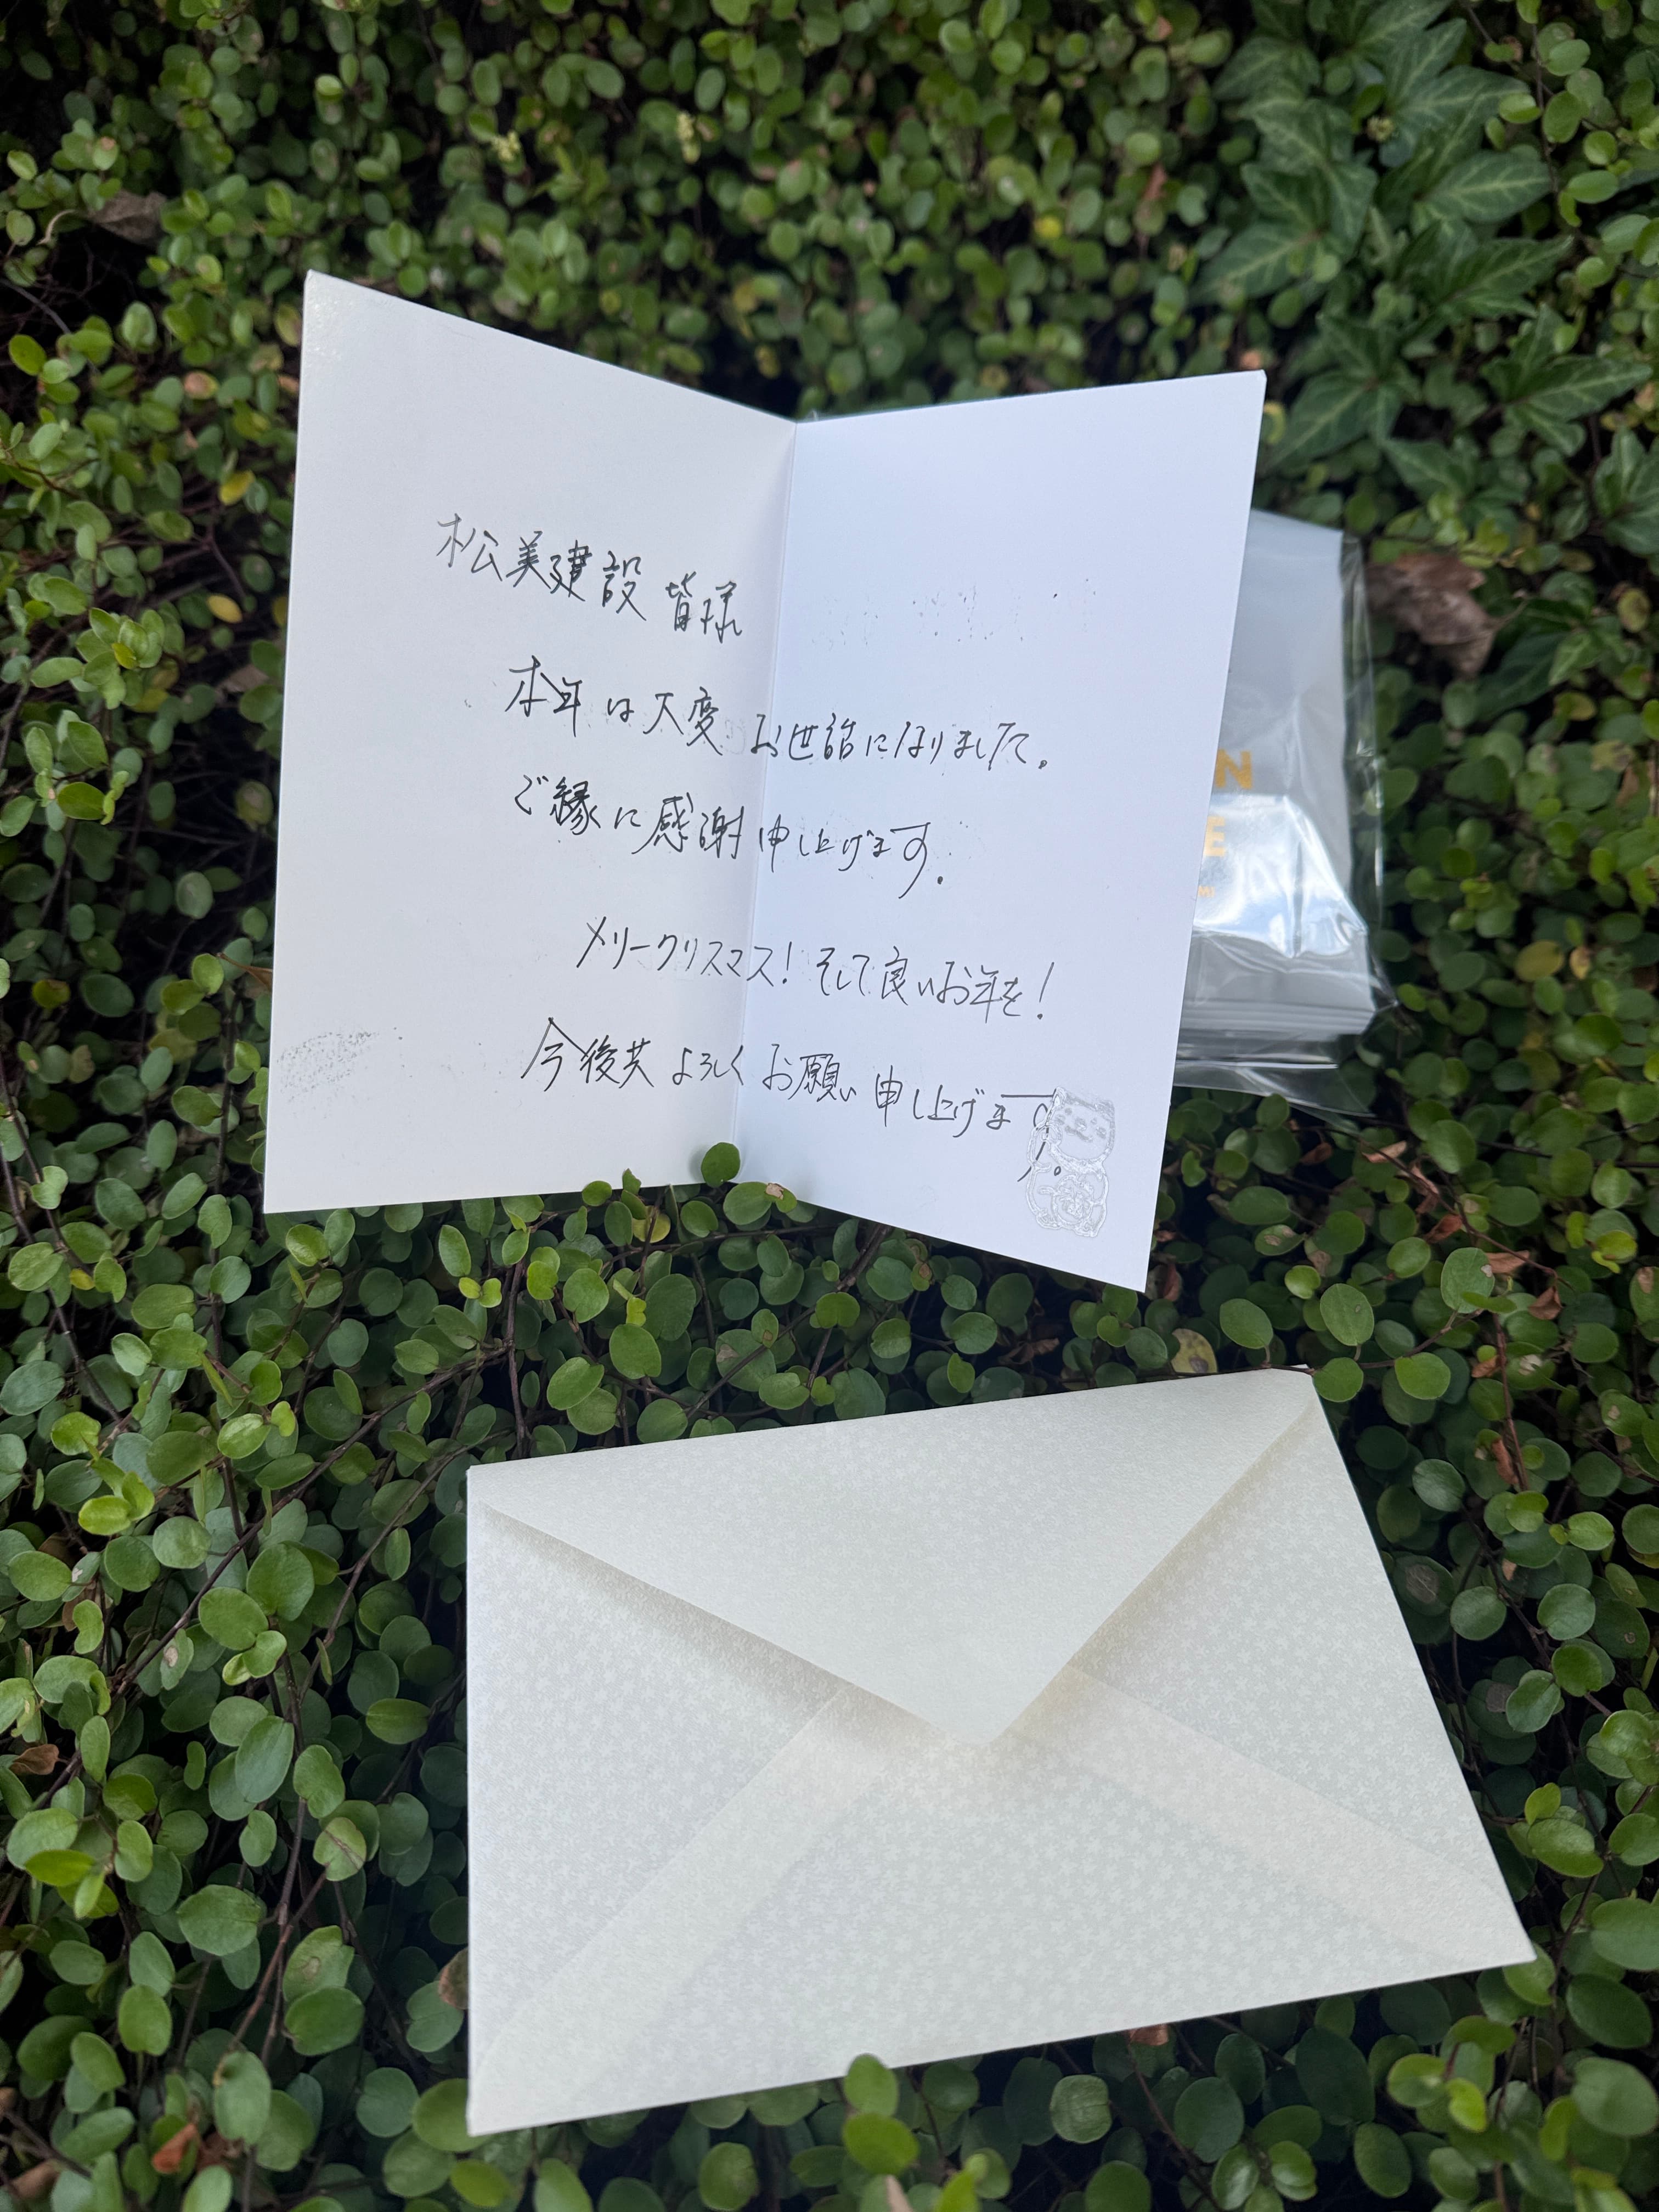 松美建設 皆様
本年は大変 お世話になりました。
ご縁に感謝申し上げます。
メリークリスマス！そして良いお年を！
今後共 よろしくお願い申し上げます。
N
E